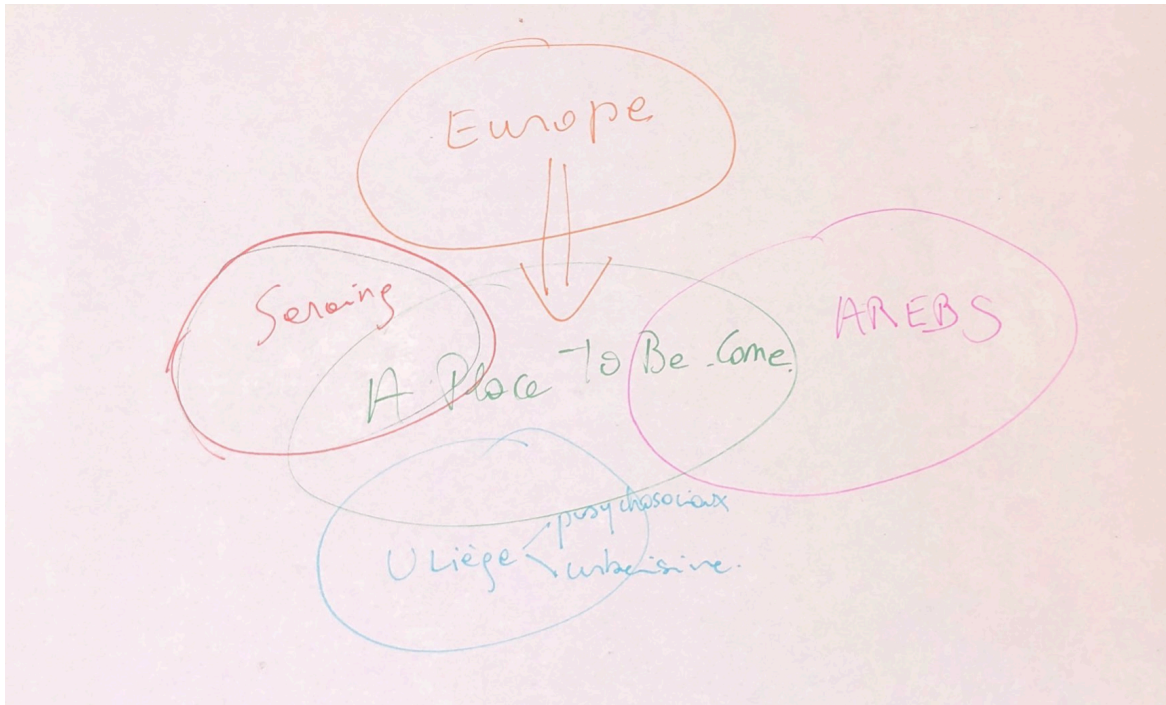 Europe
Seraing
AREBS
A Place To Be Come
ULiège
psychosociaux
urbanisme.